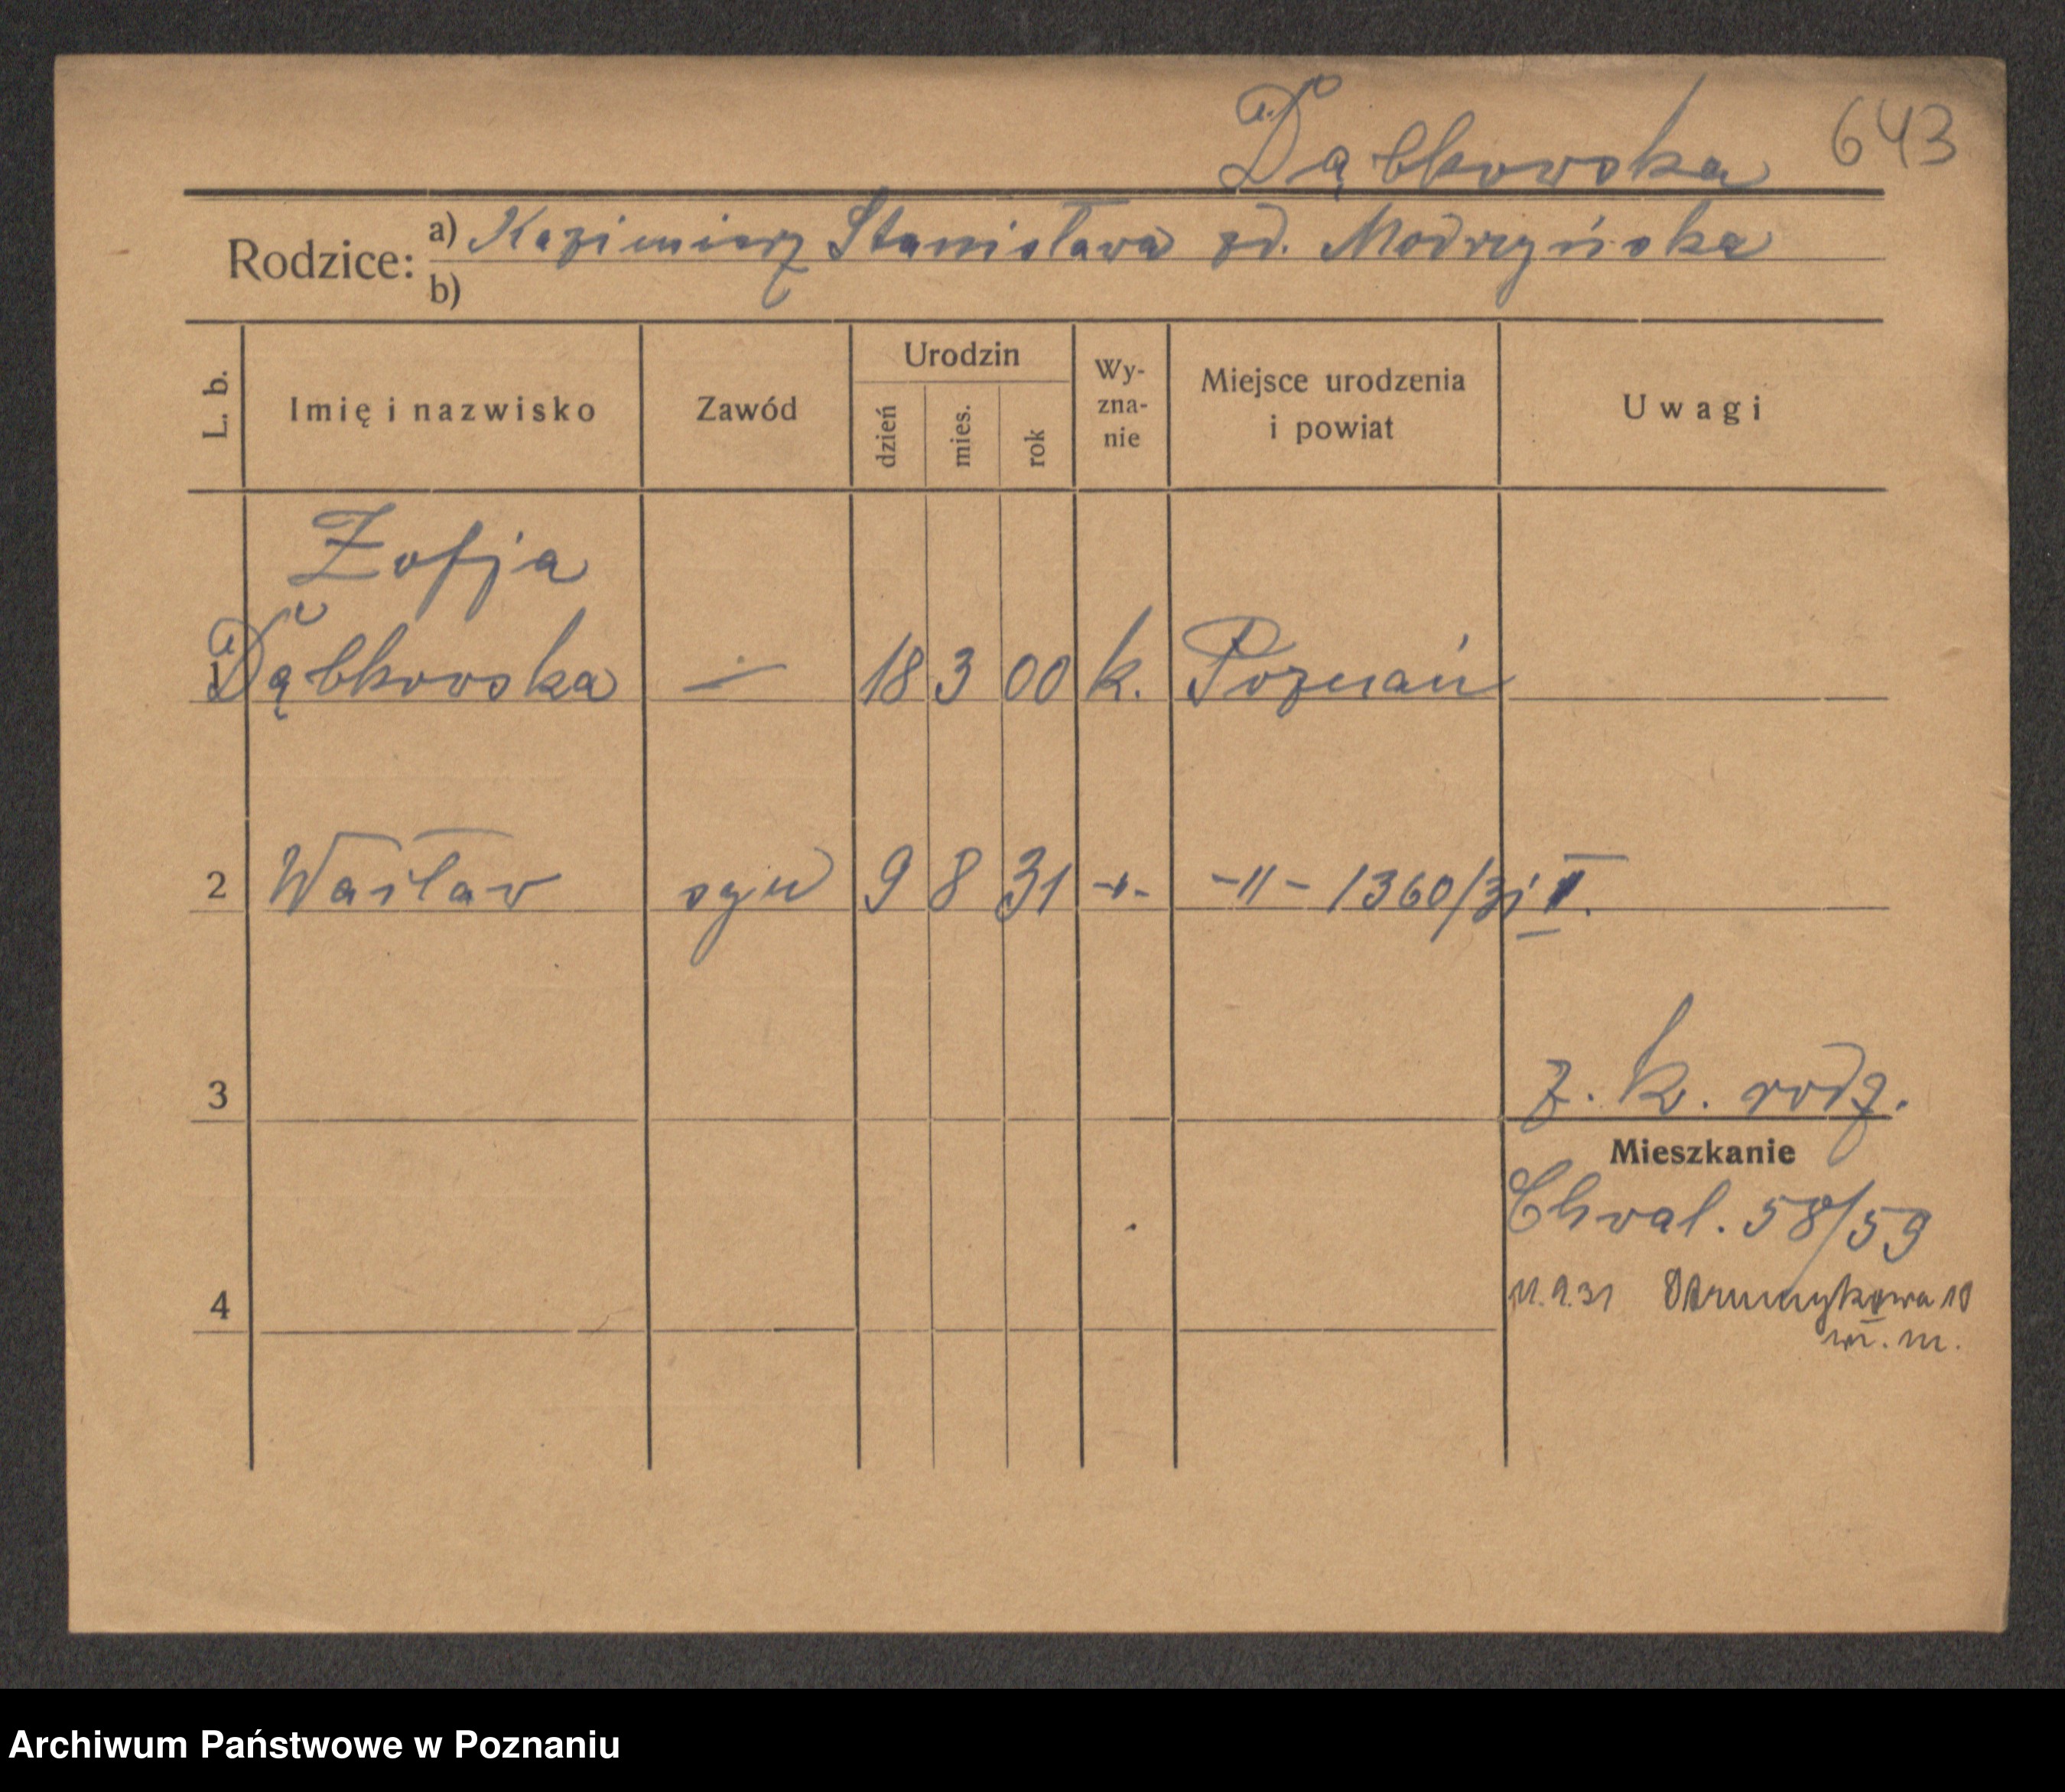 Dąbkowska 643
Rodzice: a) Kazimierz Stanisława zd. Modrzyńska
b)
L. b. Imię i nazwisko Zawód Urodzin dzień mies. rok Wy-zna-nie Miejsce urodzenia i powiat Uwagi
Zofja
1 Dąbkowska — 18 3 00 k. Poznań
2 Wacław syn 9 8 31 -"- -"- 1360/31 II.
3 z. k. rodz.
Mieszkanie
Chwal. 58/59
4 11.9.31
Archiwum Państwowe w Poznaniu